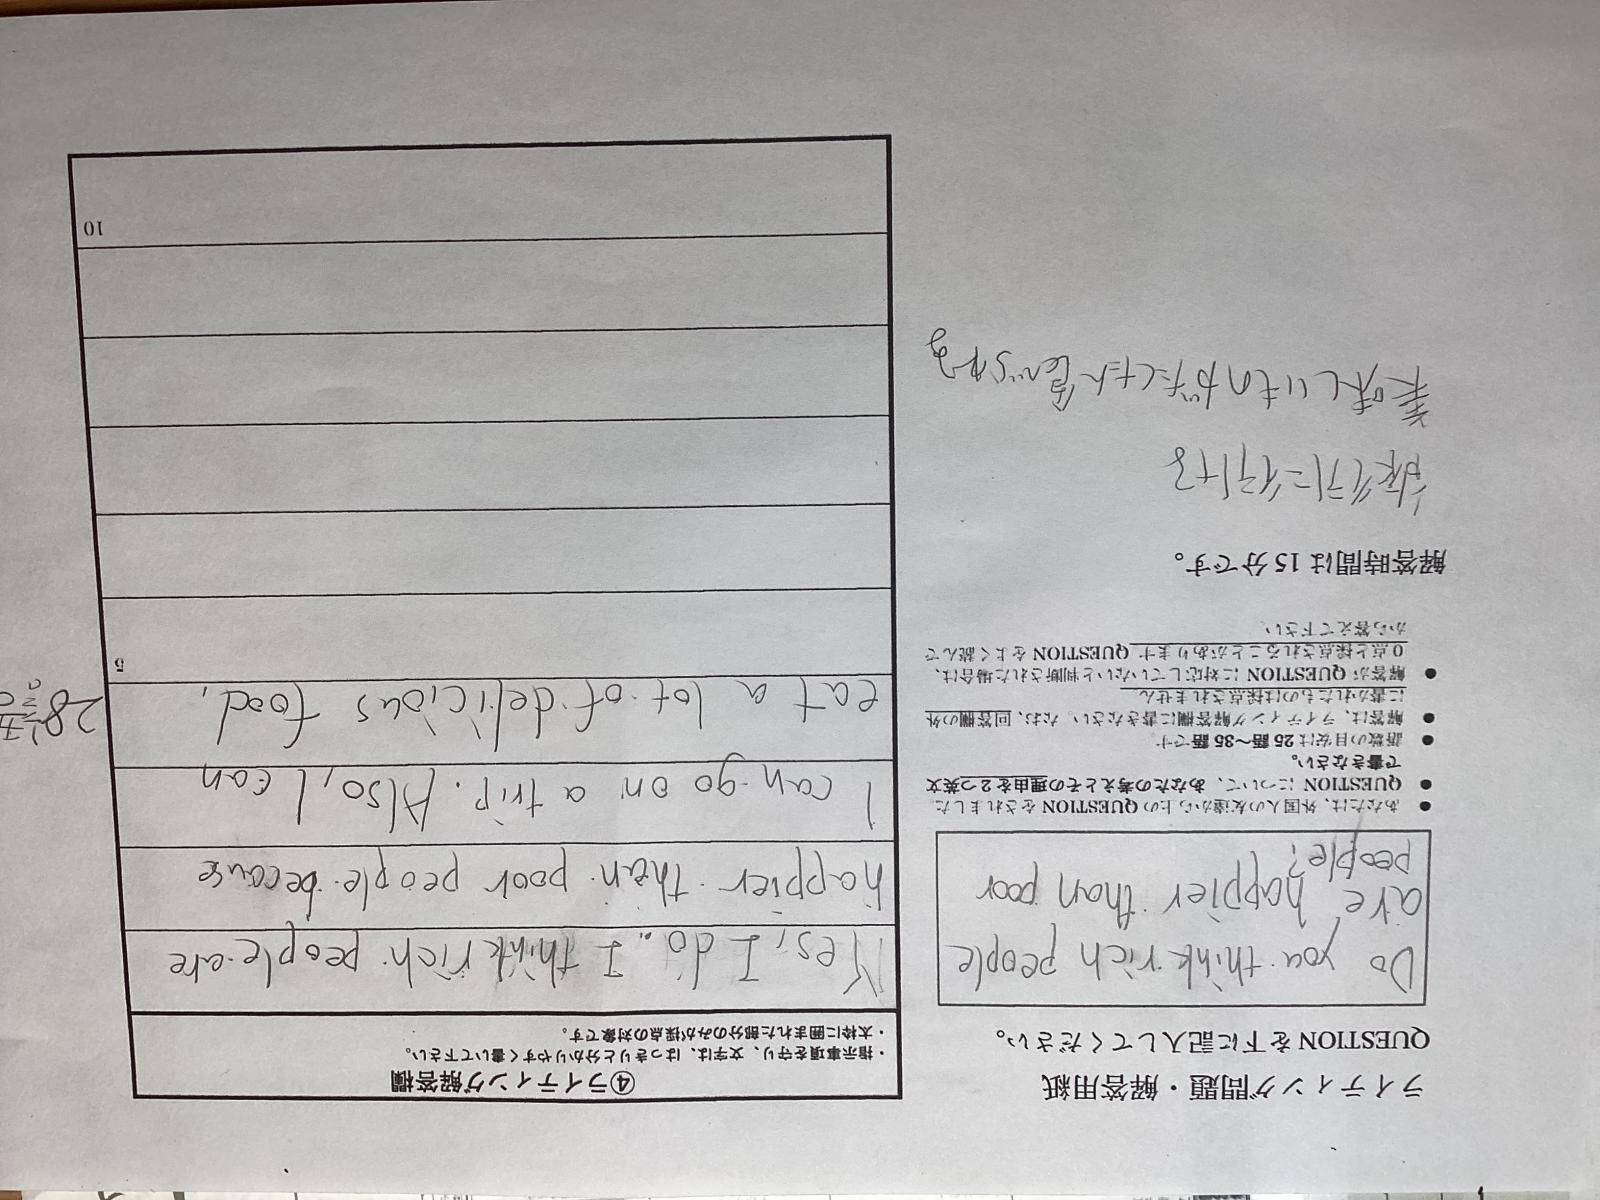 ライティング問題・解答用紙
QUESTION を下に記入してください。
Do you think rich people
are happier than poor
people?
● あなたは、外国人の友達から上の QUESTION をされました。
● QUESTION について、あなたの考えとその理由を2つ英文
で書きなさい。
● 語数の目安は 25 語～35 語です。
● 解答は、ライティング解答欄に書きなさい。なお、回答欄の外
に書かれたものは採点されません
● 解答が QUESTION に対応していないと判断された場合は、
0点と採点されることがあります。QUESTION をよく読んで
から答えて下さい。
解答時間は 15 分です。
旅行に行ける
美味しいものがたくさん食べれる
④ライティング解答欄
・指示事項を守り、文字は、はっきりと分かりやすく書いて下さい。
・太枠に囲まれた部分のみが採点の対象です。
Yes, I do. I think rich people are
happier than poor people because
I can go on a trip. Also, I can
eat a lot of delicious food.
28
5
10